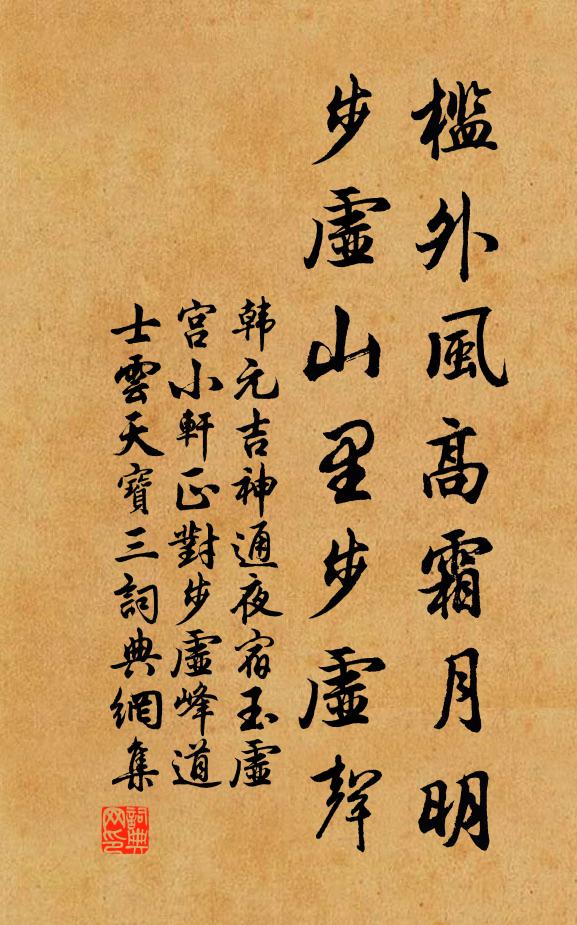 檻外風高霜月明
步虛山里步虛聲
韩元吉神通夜宿玉虛
宮小軒正對步虛峰道
士雲天寶三詞典網集
詞典网印